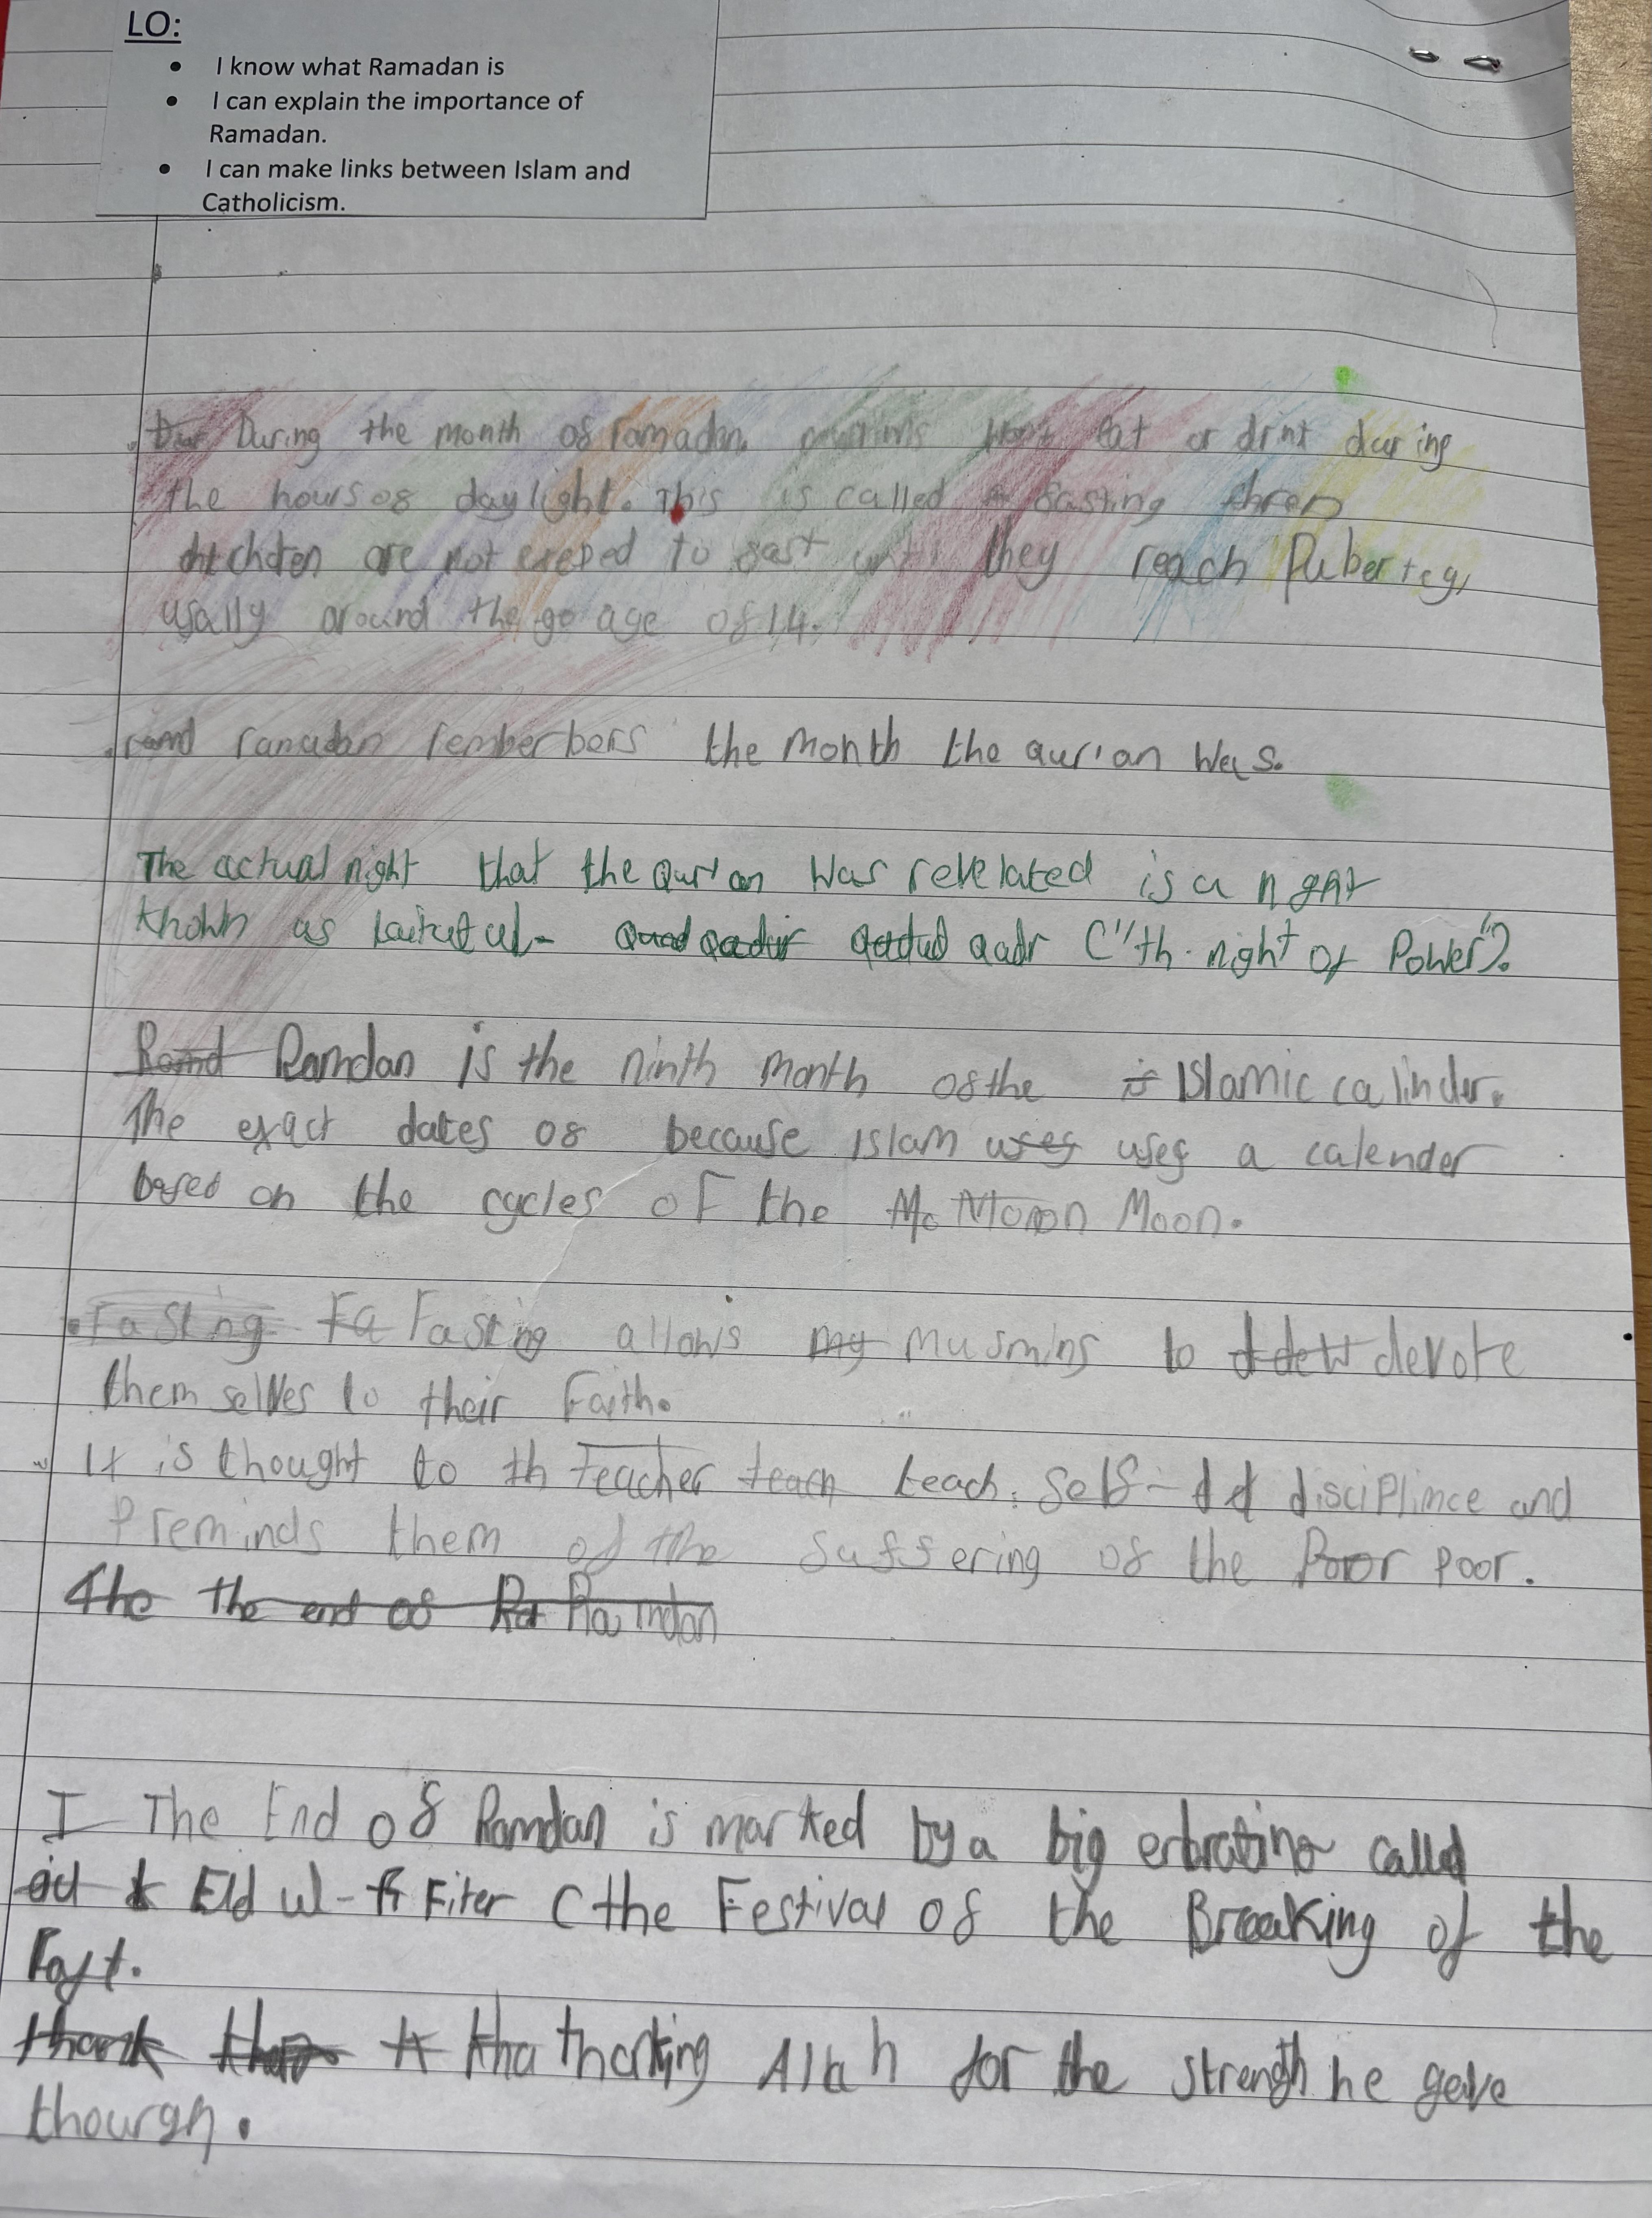 LO:
• I know what Ramadan is
• I can explain the importance of
Ramadan.
• I can make links between Islam and
Catholicism.
During the month of ramadan. eat or drint during
the hours of daylight. This is called fasting
are not to fast until they reach Puberty,
usally around the age of 14.
ramadan rememberbers the month the qur'an was.
The actual night that the Qur'an was revelated is a night
known as qadr ("th night of Power").
Ramdan is the ninth month of the Islamic calinder.
The exact dates of because Islam uses uses a calender
based on the cycles of the Moon.
Fasting Fa Fasting allows my musmins to devote
themselves to their Faith.
It is thought to th teacher teach teach self-d d disciplince and
reminds them of the suffering of the Poor poor.
The the end of Ra Ramdan
I The End of Ramdan is marked by a big called
Eid ul-Fiter (the Festival of the Breaking of the
Fast.
thank tha thanking Allah for the strength he gave